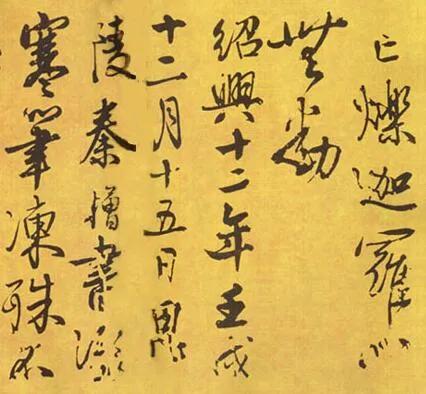 亡爍迦羅心
無動
紹興十二年壬戌
十二月十五日毘
陵秦憎書
寒筆凍殊不